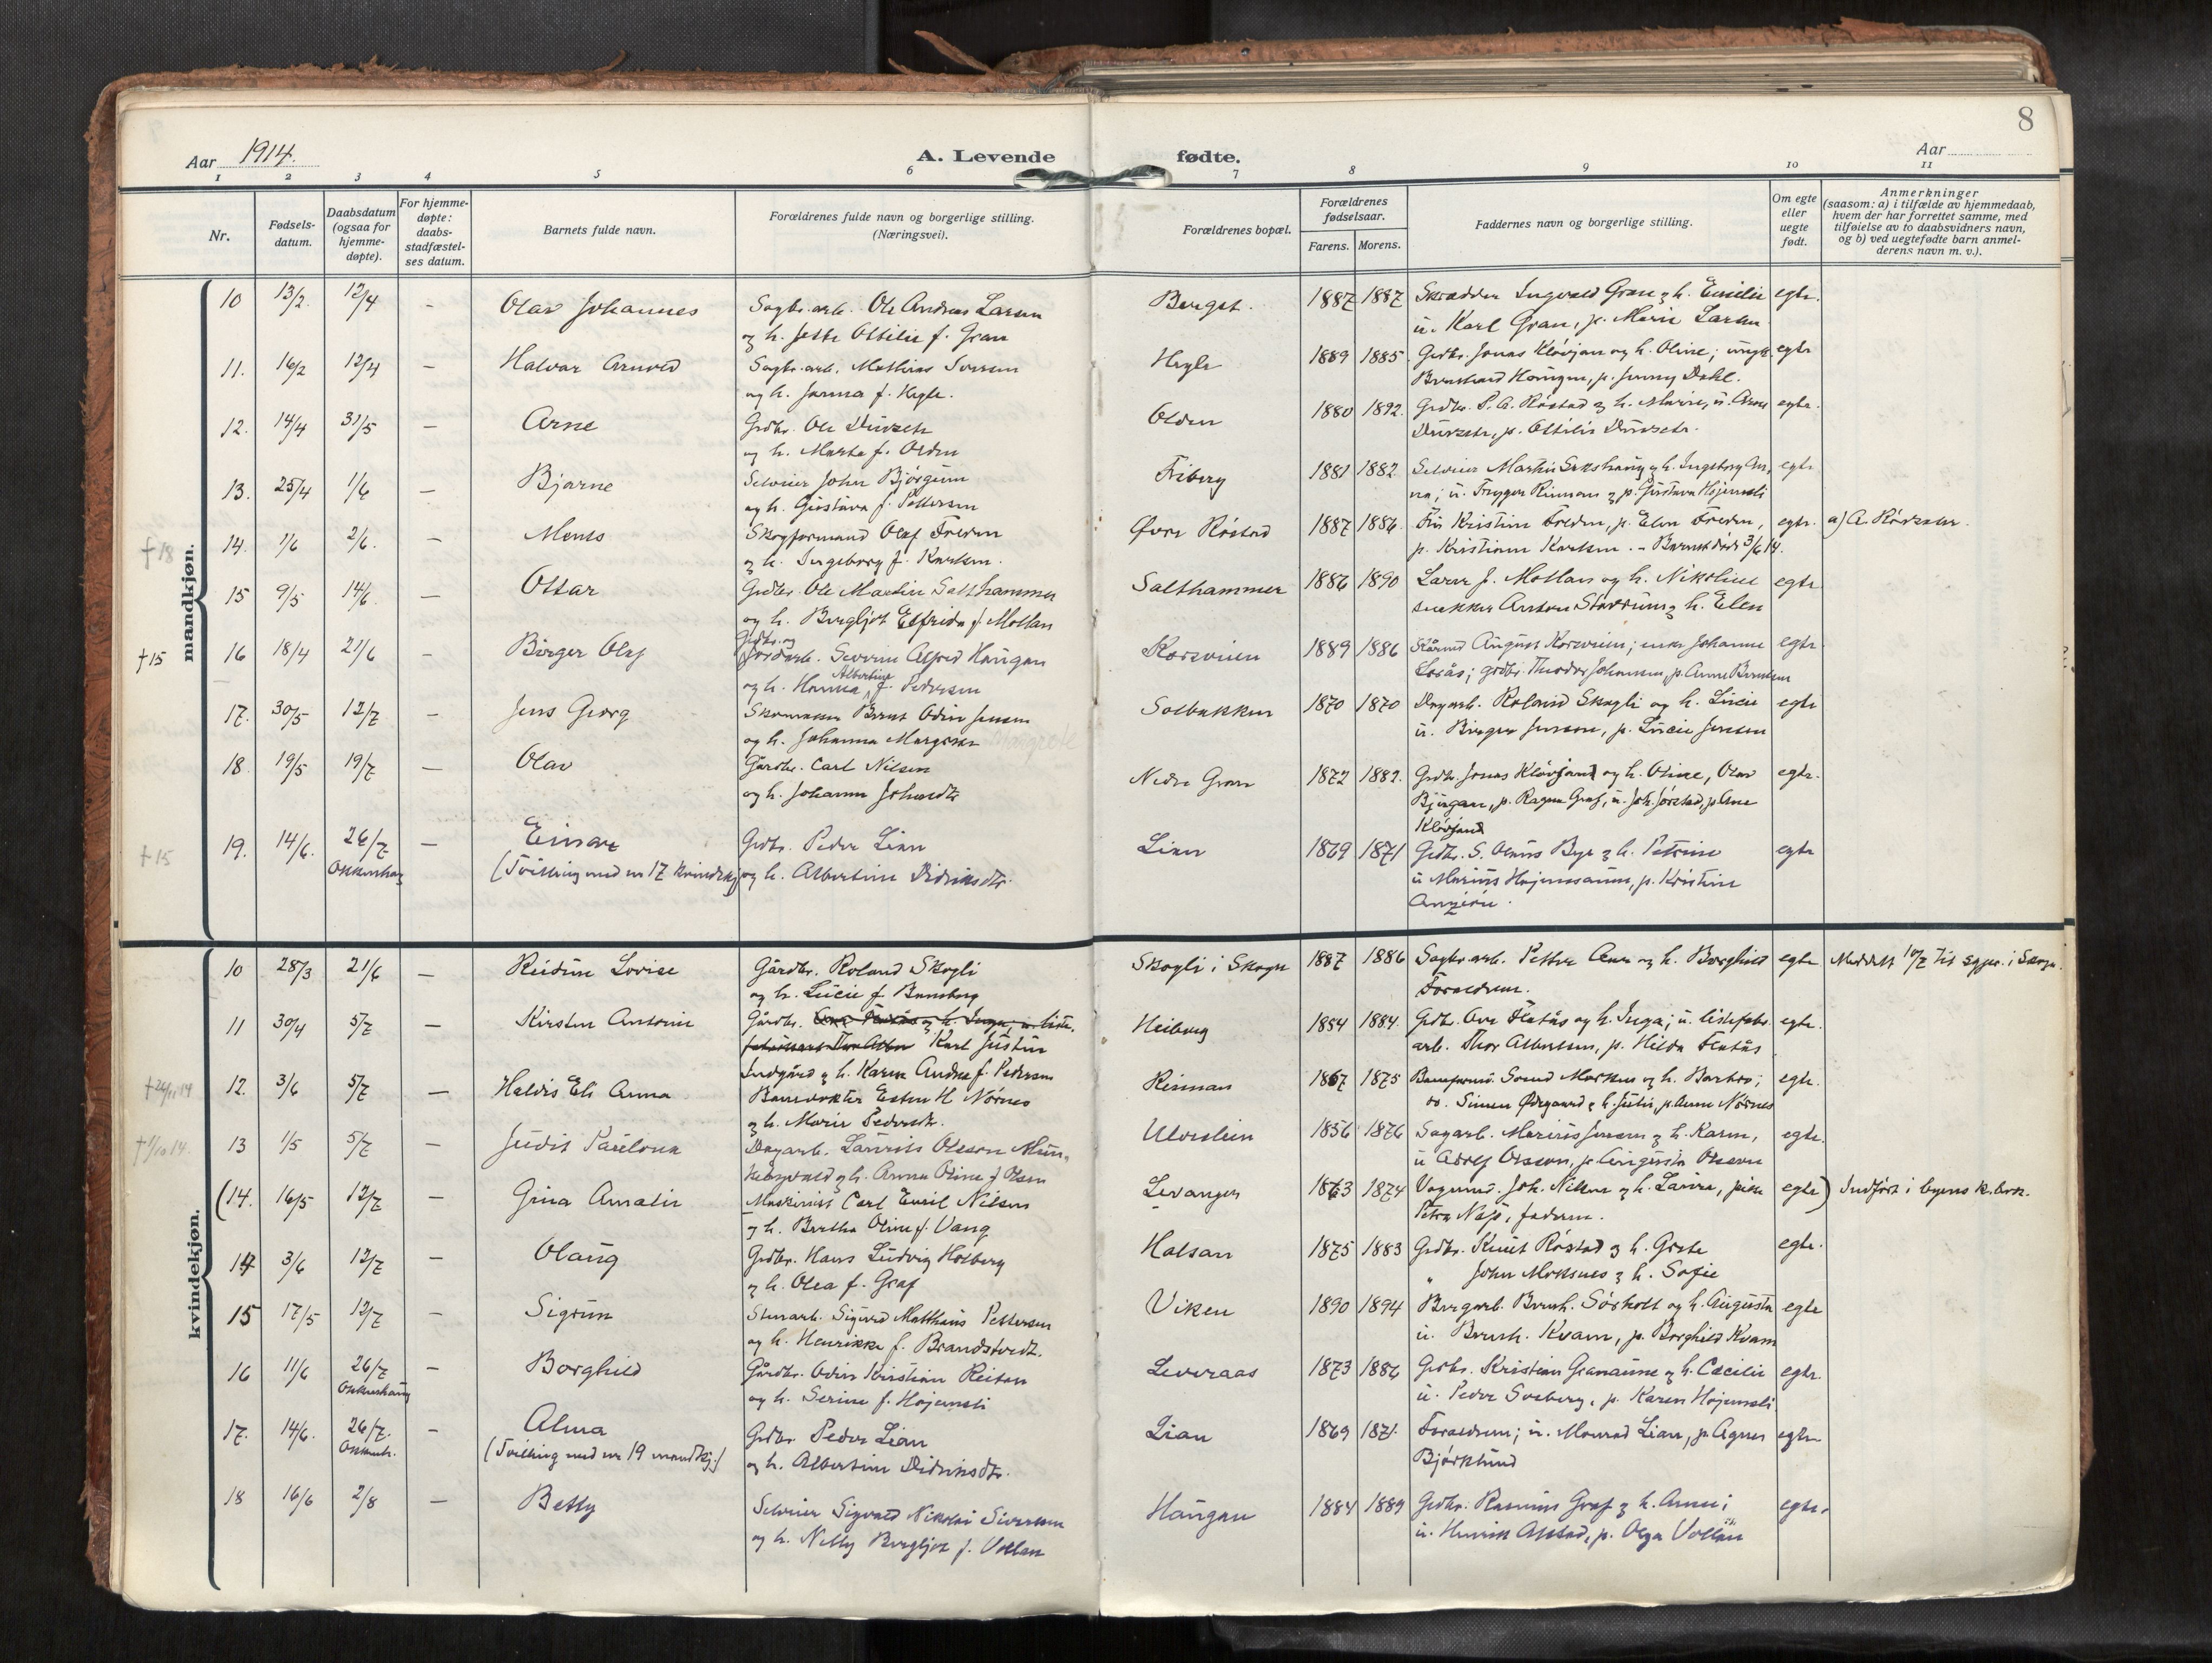 8
Aar 1914.
A. Levende fødte.
Aar
1 2 3 4 5 6 7 8 9 10 11
Nr.
Fødsels-
datum.
Daabsdatum
(ogsaa for
hjemme-
døpte).
For hjemme-
døpte:
daabs-
stadfæstel-
ses datum.
Barnets fulde navn.
Forældrenes fulde navn og borgerlige stilling.
(Næringsvei).
Forældrenes bopæl.
Forældrenes
fødselsaar.
Farens. Morens.
Faddernes navn og borgerlige stilling.
Om egte
eller
uegte
født.
Anmerkninger
(saasom: a) i tilfælde av hjemmedaab,
hvem der har forrettet samme, med
tilføielse av to daabsvidners navn,
og b) ved uegtefødte barn anmel-
derens navn m. v.).
mandkjøn.
10 13/2. 12/4 – Olav Johannes Sagbr.arb. Ole Andreas Larsen Berget. 1887 1887 Skrædder Ingvald Gran og h. Emilie egte.
og h. Jette Ottilie f. Gran u. Karl Gran, p. Marie Larsen
11. 16/2 12/4 – Halvar Arnold Sagbr.arb. Mathias Iversen Hegle 1889 1885. Grdbr. Jonas Kløvjan og h. Oline; ungk. egte
og h. Janna f. Hegle. Bernhard Haugen, p. Jenny Dahl.
12. 14/4 31/5 – Arne Grdbr. Ole Duvsete Olden 1880 1892. Grdbr. P. A. Røstad og h. Marie, u. Arne egte.
og h. Marta f. Olden Duvsete, p. Ottilie Duvsete.
13. 25/4 1/6 – Bjarne Selveier John Bjørgum Friberg 1881 1882 Selveier Martin Sakshaug og h. Ingeborg An- egte
og h. Gustava f. Pettersen na; u. Trygve Rinnan og p. Gustava Højemsli
†18 14. 1/6 2/6. – Ments Skogformand Olaf Treden Øvre Røstad 1887 1886. Fru Kristine Treden, p. Elen Treden, egte. a) A. Rådsete.
og h. Ingeborg f. Karlsen. p. Kristiane Karlsen. – Barnet død 3/6 14.
15 9/5 14/6. – Ottar Grdbr. Ole Martin Salthammer Salthammer 1886 1890 Lærer J. Mollan og h. Nikoline egte
og h. Bergljot Elfrida f. Mollan snekker Anton Stavrum og h. Elen
†15 16 18/4 21/6 – Birger Olaf Grdbr. og
Jordarb. Severin Alfred Haugan Korsveien 1889 1886 August Korsveien; enke Johanne egte
og h. Hanna Albertine f. Pedersen Lorås; grdbr. Theodor Johansen, p. Anna Berntsen
17. 30/5 12/7 – Jens Georg Skomaker Bernt Odin Jensen Solbakken 1870 1870 Dagarb. Roland Skogli og h. Lucie egte
og h. Johanna Margrete Margrete u. Birger Jensen, p. Lucie Jensen
18. 19/5 19/7 – Olav Gårdbr. Carl Nilsen Nedre Gran 1872 1882. Grdbr. Jonas Kløvjan og h. Oline, Olav egte.
og h. Johanna Johansdtr Bjørgan, p. Ragna Graf, u. Joh. Jørstad, p. Ane
Kløvjan
†15 19. 14/6. 26/7 – Einar Grdbr. Peder Lian Lian 1869 1871 Grdbr. S. Olaus Bye og h. Petrine egte
Okkenhaug (Tvilling med nr 17 kvindekj.) og h. Albertine Didriksdtr. u Marius Højemsaunn, p. Kristine
kvindekjøn.
10 28/3 21/6 – Reidun Lovise Gårdbr. Roland Skogli Skogli i Skogn 1887 1886 Sagbr.arb. Petter Aune og h. Borghild egte Meddelt 10/7 til sgpr. i Skogn.
og h. Lucie f. Bamberg Forældrene.
11 30/4 5/7 – Kirsten Antonie Gårdbr. Ove Flatås og h. Inga, u. liste- Heiberg 1884 1884. Grdbr. Ove Flatås og h. Inga; u. listefabr. egte.
fabrikarb. Thor Alber Karl Justin arb. Thor Albertsen, p. Hilda Flatås
Indgård og h. Karen Andrea f. Pedersen
†26/11 14 12. 3/6 5/7 – Haldis Eli Anna Banevokter Esten H. Nørnes Rinnan 1867 1875 Baneformd. Sivert Markus og h. Barbro; egte.
og h. Marie Pedersdtr. Simen Ødegaard og h. Julie, p. Anna Nørnes
†1/10 14. 13 1/5 5/7 – Judit Paulona Dagarb. Laurits Olsson Mun- Ulvelien 1856 1876 Sagarb. Marius Jensen og h. Karen, egte.
kebyvald og h. Anna Oline f Olsen u Adolf Olsson, p. Augusta Olsson
(14. 16/5 12/7 – Gina Amalie Maskinist Carl Emil Nilsen Levanger 1863 1874 Vognmd. Joh. Nilsen og h. Laura, pike egte) Indført i byens k.bok.
og h. Bertha Oline f. Vang Petra Næss, faderen.
14 3/6 12/7 – Olaug Grdbr. Hans Ludvig Holberg Halsan 1875 1883 Grdbr. Knut Røstad og h. Grete egte.
og h. Olea f. Graf " John Moksnes og h. Sofie
15 17/5 12/7 – Sigrun Stenarb. Sigurd Matthæus Pettersen Viken 1890 1894 Bergarb. Bernh. Sørholt og h. Augusta egte
og h. Henrikke f. Brandstvedt. u. Bernh. Kvam, p. Borghild Kvam
16 11/6 26/7 – Borghild Gårdbr. Odin Kristian Reitan Leveraas 1873 1886 Grdbr. Kristian Granaune og h. Cæcilie egte.
Okkenhaug og h. Serine f. Højemsli u. Peder Soeberg, p. Karen Højemsli
17. 14/6. 26/7. – Alma Grdbr. Peder Lian Lian 1869 1871. Forældrene; u. Monrad Lian, p. Agnes egte
Okkenh. (Tvilling med nr 19 mandkj.) og h. Albertine Didriksdtr. Björklund
18 16/6 2/8 – Betty Selveier Sigvald Nikolai Sivertsen Haugan 1884 1889 Grdbr. Rasmus Graf og h. Anna; egte.
og h. Nelly Bergljot f. Vollan u. Henrik Alstad, p. Olga Vollan